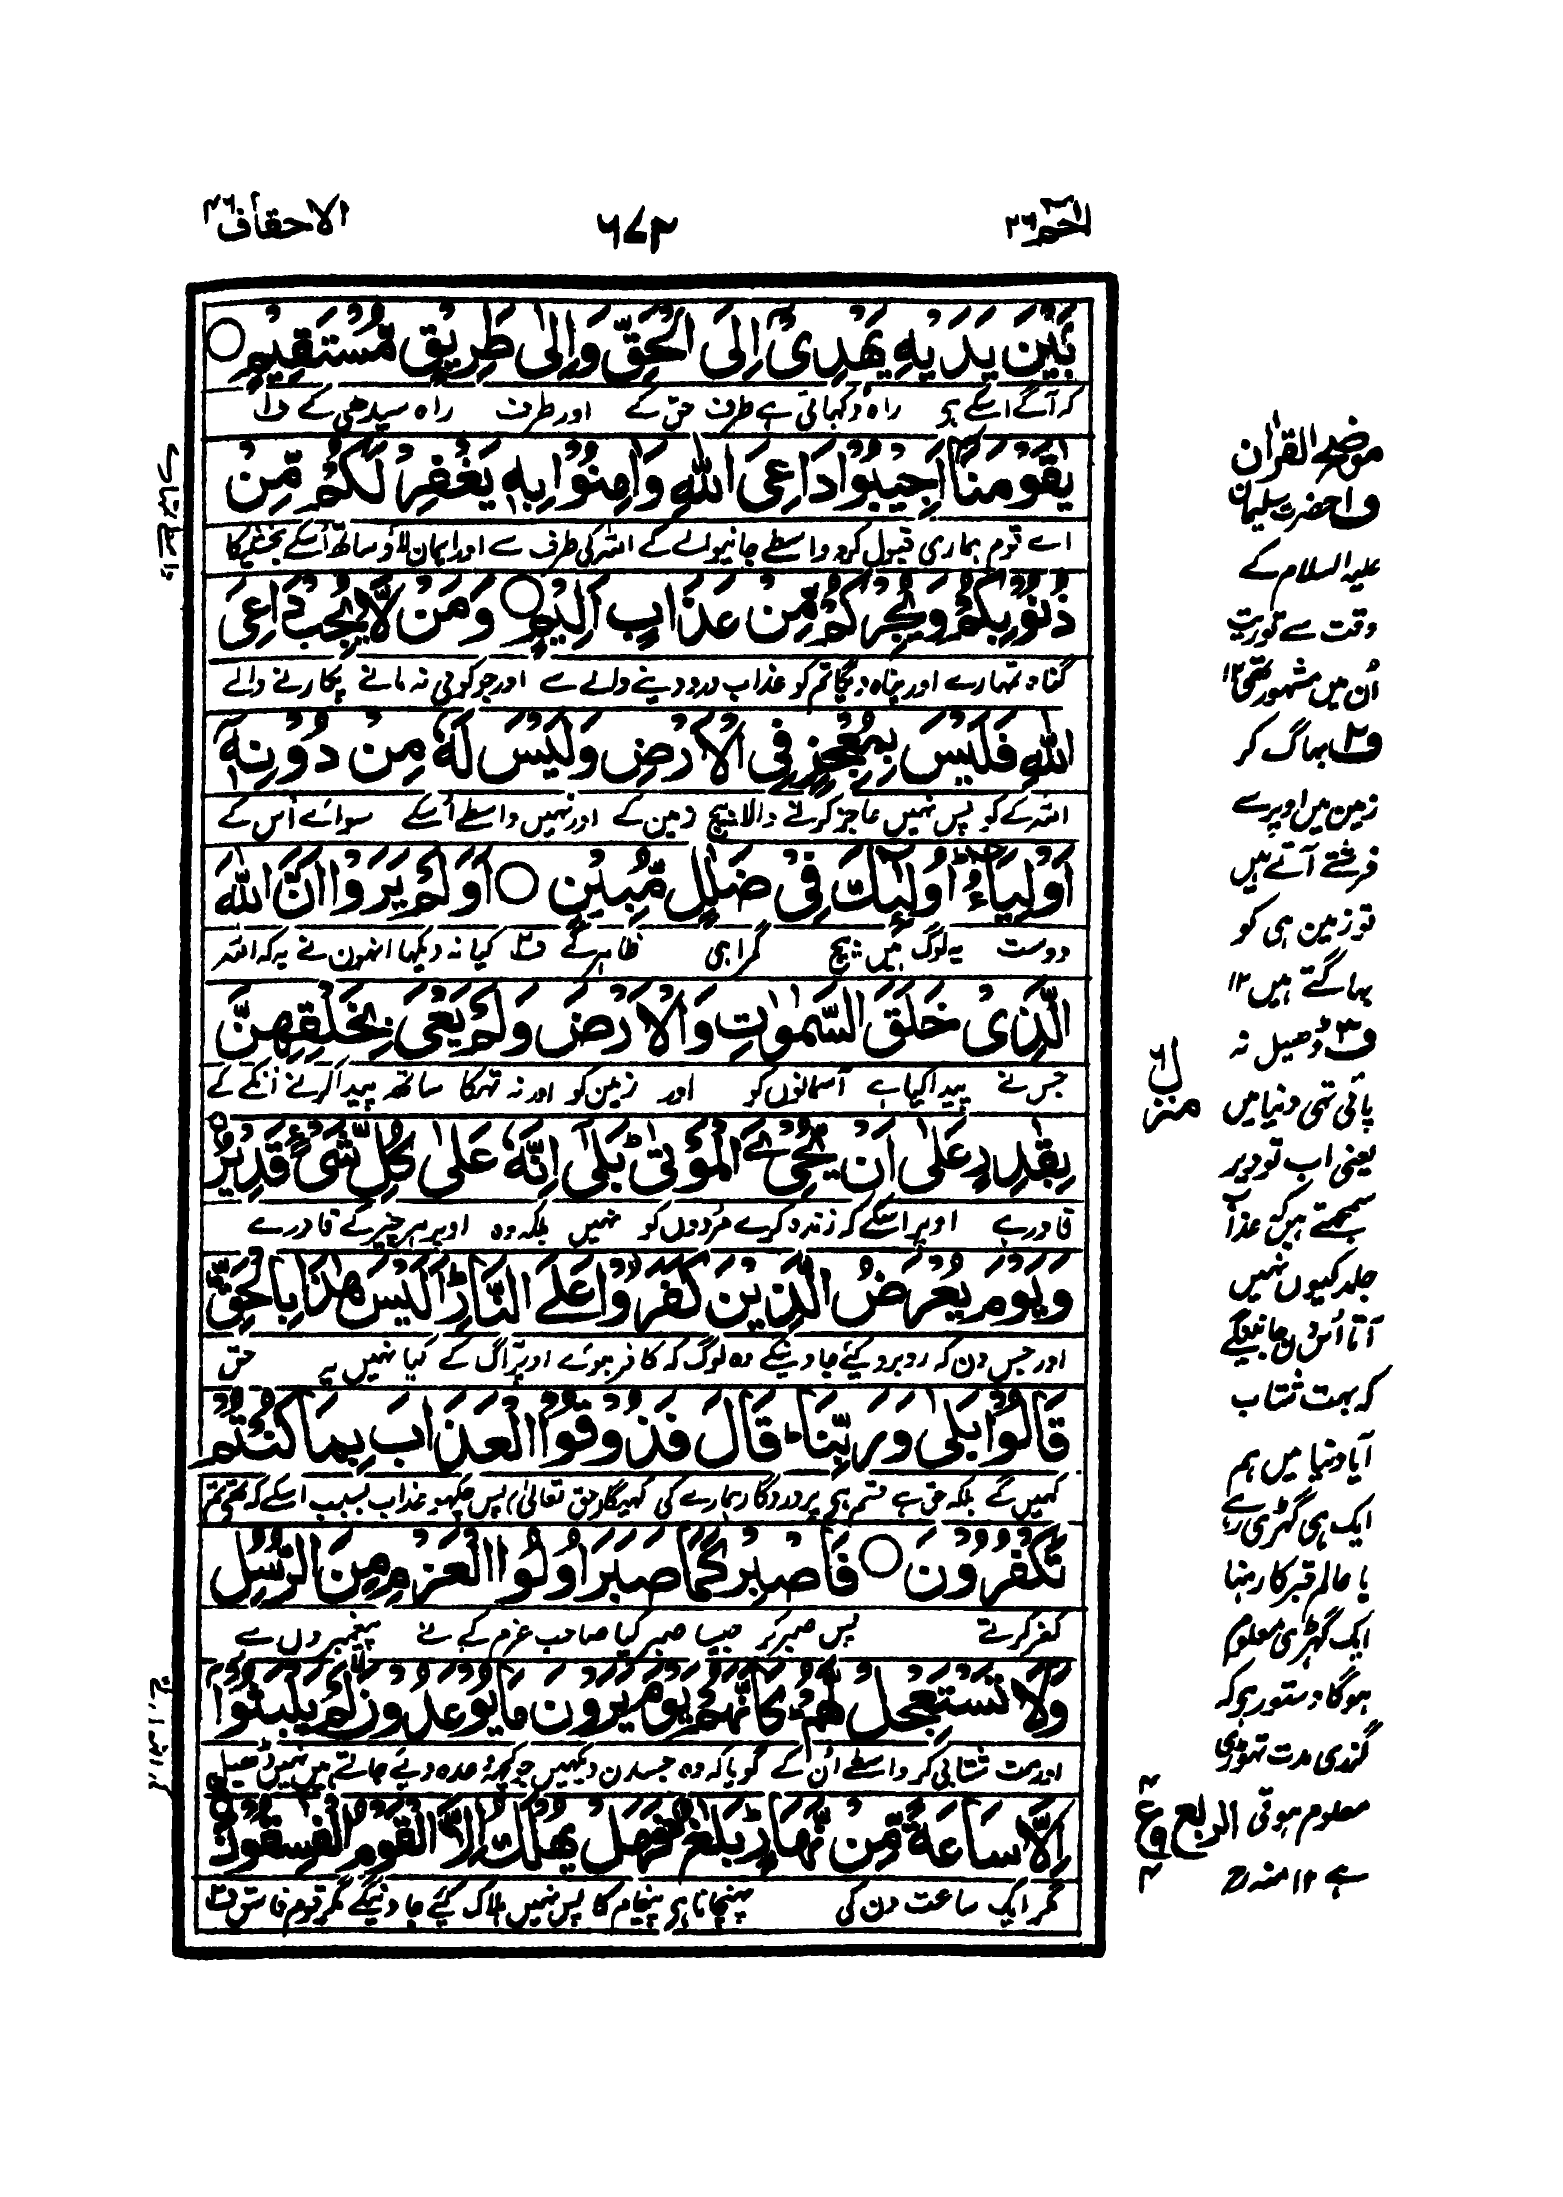 الاحقاف ۴۶
۶۷۲
حٰمٓ ۲۶
بَيْنَ يَدَيْهِ يَهْدِيْٓ اِلَى الْحَقِّ وَاِلٰى طَرِيْقٍ مُّسْتَقِيْمٍ ○
کہ آگے اسکے ہے راہ دکھاتی ہے طرف حق کے اور طرف راہ سیدھی کے ف۱
يٰقَوْمَنَآ اَجِيْبُوْا دَاعِيَ اللّٰهِ وَاٰمِنُوْا بِهٖ يَغْفِرْ لَكُمْ مِّنْ
اے قوم ہماری قبول کرو واسطے جانیوالے کے اللہ کی طرف سے اور ایمان لاؤ ساتھ اُسکے بخشیگا
ذُنُوْبِكُمْ وَيُجِرْكُمْ مِّنْ عَذَابٍ اَلِيْمٍ ○ وَمَنْ لَّا يُجِبْ دَاعِيَ
گناہ تمہارے اور پناہ دیگا تم کو عذاب درد دینے والے سے اور جو کوئی نہ مانے پکارنے والے
اللّٰهِ فَلَيْسَ بِمُعْجِزٍ فِي الْاَرْضِ وَلَيْسَ لَهٗ مِنْ دُوْنِهٖٓ
اللہ کے کو پس نہیں عاجز کرنے والا بیچ زمین کے اور نہیں واسطے اُسکے سوائے اُس کے
اَوْلِيَآءُ اُولٰٓئِكَ فِيْ ضَلٰلٍ مُّبِيْنٍ ○ اَوَلَمْ يَرَوْا اَنَّ اللّٰهَ
دوست یہ لوگ ہیں بیچ گمراہی ظاہر کے ف۲ کیا نہ دیکھا انہوں نے یہ کہ اللہ
الَّذِيْ خَلَقَ السَّمٰوٰتِ وَالْاَرْضَ وَلَمْ يَعْيَ بِخَلْقِهِنَّ
جس نے پیدا کیا ہے آسمانوں کو اور زمین کو اور نہ تھکا ساتھ پیدا کرنے اُنکے کے
بِقٰدِرٍ عَلٰٓى اَنْ يُّحْيِ َۧ الْمَوْتٰى ؕ بَلٰٓى اِنَّهٗ عَلٰى كُلِّ شَيْءٍ قَدِيْرٌ ○
قادر ہے اوپر اسکے کہ زندہ کرے مُردوں کو نہیں بلکہ وہ اوپر ہر چیز کے قادر ہے
وَيَوْمَ يُعْرَضُ الَّذِيْنَ كَفَرُوْا عَلَى النَّارِ ؕ اَلَيْسَ هٰذَا بِالْحَقِّ ؕ
اور جس دن کہ روبرو کیئے جاوینگے وہ لوگ کہ کافر ہوئے اوپر آگ کے کیا نہیں یہ حق
قَالُوْا بَلٰى وَرَبِّنَا ؕ قَالَ فَذُوْقُوا الْعَذَابَ بِمَا كُنْتُمْ
کہیں گے بلکہ حق ہے قسم ہے پروردگار ہمارے کی کہیگا حق تعالیٰ پس چکھو عذاب بسبب اسکے کہ تھے تم
تَكْفُرُوْنَ ○ فَاصْبِرْ كَمَا صَبَرَ اُولُوا الْعَزْمِ مِنَ الرُّسُلِ
کفر کرتے پس صبر کر جیسا صبر کیا صاحب عزم کے نے پیغمبروں سے
وَلَا تَسْتَعْجِلْ لَّهُمْ ؕ كَاَنَّهُمْ يَوْمَ يَرَوْنَ مَا يُوْعَدُوْنَ لَمْ يَلْبَثُوْٓا
اور مت شتابی کر واسطے اُن کے گویا کہ وہ جس دن دیکھیں جو کچھ وعدہ دیے جاتے ہیں نہیں ڈھیل
اِلَّا سَاعَةً مِّنْ نَّهَارٍ ؕ بَلٰغٌ ۚ فَهَلْ يُهْلَكُ اِلَّا الْقَوْمُ الْفٰسِقُوْنَ ○
مگر ایک ساعت دن کی پہنچانا ہے پیغام کا پس نہیں ہلاک کیئے جاوینگے مگر قوم فاسق ف۳
موضح القرآن
ف۱ حضرت سلیمان
علیہ السلام کے
وقت سے توریت
اُن میں مشہور تھی ۱۲
ف۲ بھاگ کر
زمین میں اوپر سے
فرشتے آتے ہیں
تو زمین ہی کو
بھاگتے ہیں ۱۲
ف۳ ڈھیل نہ
پائی تھی دنیا میں
یعنی اب تو دیر
سمجھتے ہو کہ عذاب
جلد کیوں نہیں
آتا اُس دن جانینگے
کہ بہت شتاب
آیا دنیا میں ہم
ایک ہی گھڑی رہے
یا عالم قبر کا رہنا
ایک گھڑی معلوم
ہوگا دستور ہے کہ
گذری مدت تھوڑی
معلوم ہوتی
ہے ۱۲ منہ رح
منزل ۶
الربع
ع
واسطے تمہارے